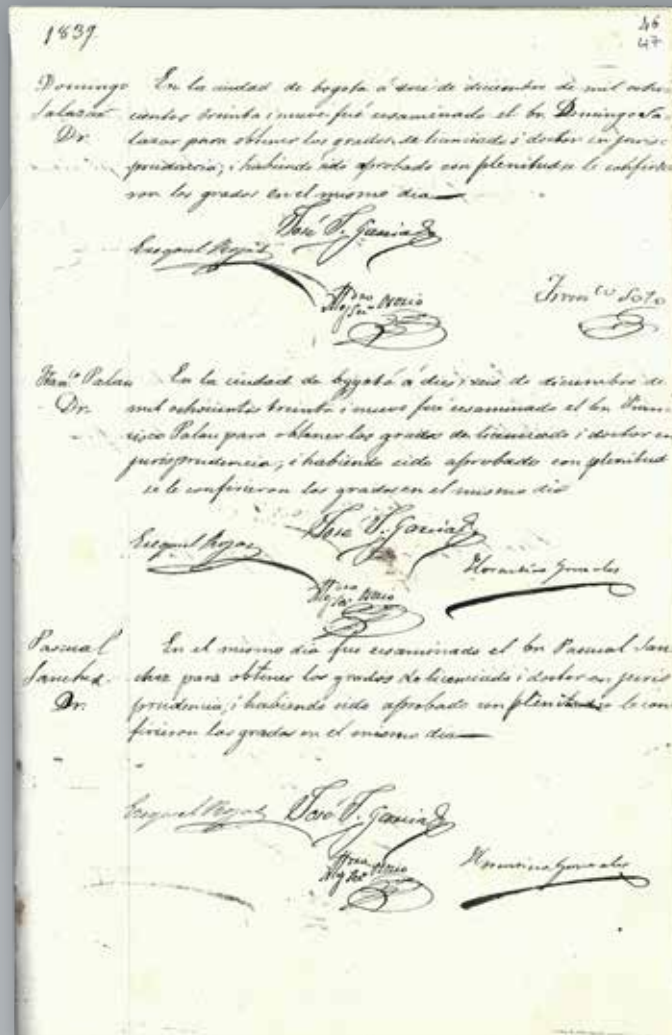 1839
46
47
Domingo
Salazar
Dr.
En la ciudad de bogota á de diciembre de mil ocho
cientos treinta i nueve fué ecsaminado el bn. Domingo Sa
lazar para obtener los grados de licenciado i doctor en juris
prudencia; i habiendo sido aprobado con plenitud se le confirie
ron los grados en el mismo dia
José I. Garcia
Ezequiel Rojas
Osorio
Franco Soto
Franco Palau
Dr.
En la ciudad de bogotá á diez i seis de diciembre de
mil ochocientos treinta i nueve fué ecsaminado el bn Fran
cisco Palau para obtener los grados de licenciado i doctor en
jurisprudencia; i habiendo sido aprobado con plenitud
se le confirieron los grados en el mismo dia
José I. Garcia
Ezequiel Rojas
Osorio
Florentino Gonzales
Pascual
Sanchez
Dr.
En el mismo dia fué ecsaminado el bn Pascual San
chez para obtener los grados de licenciado i doctor en juris
prudencia; i habiendo sido aprobado con plenitud se le con
firieron los grados en el mismo dia
Ezequiel Rojas
José I. Garcia
Osorio
Florentino Gonzales